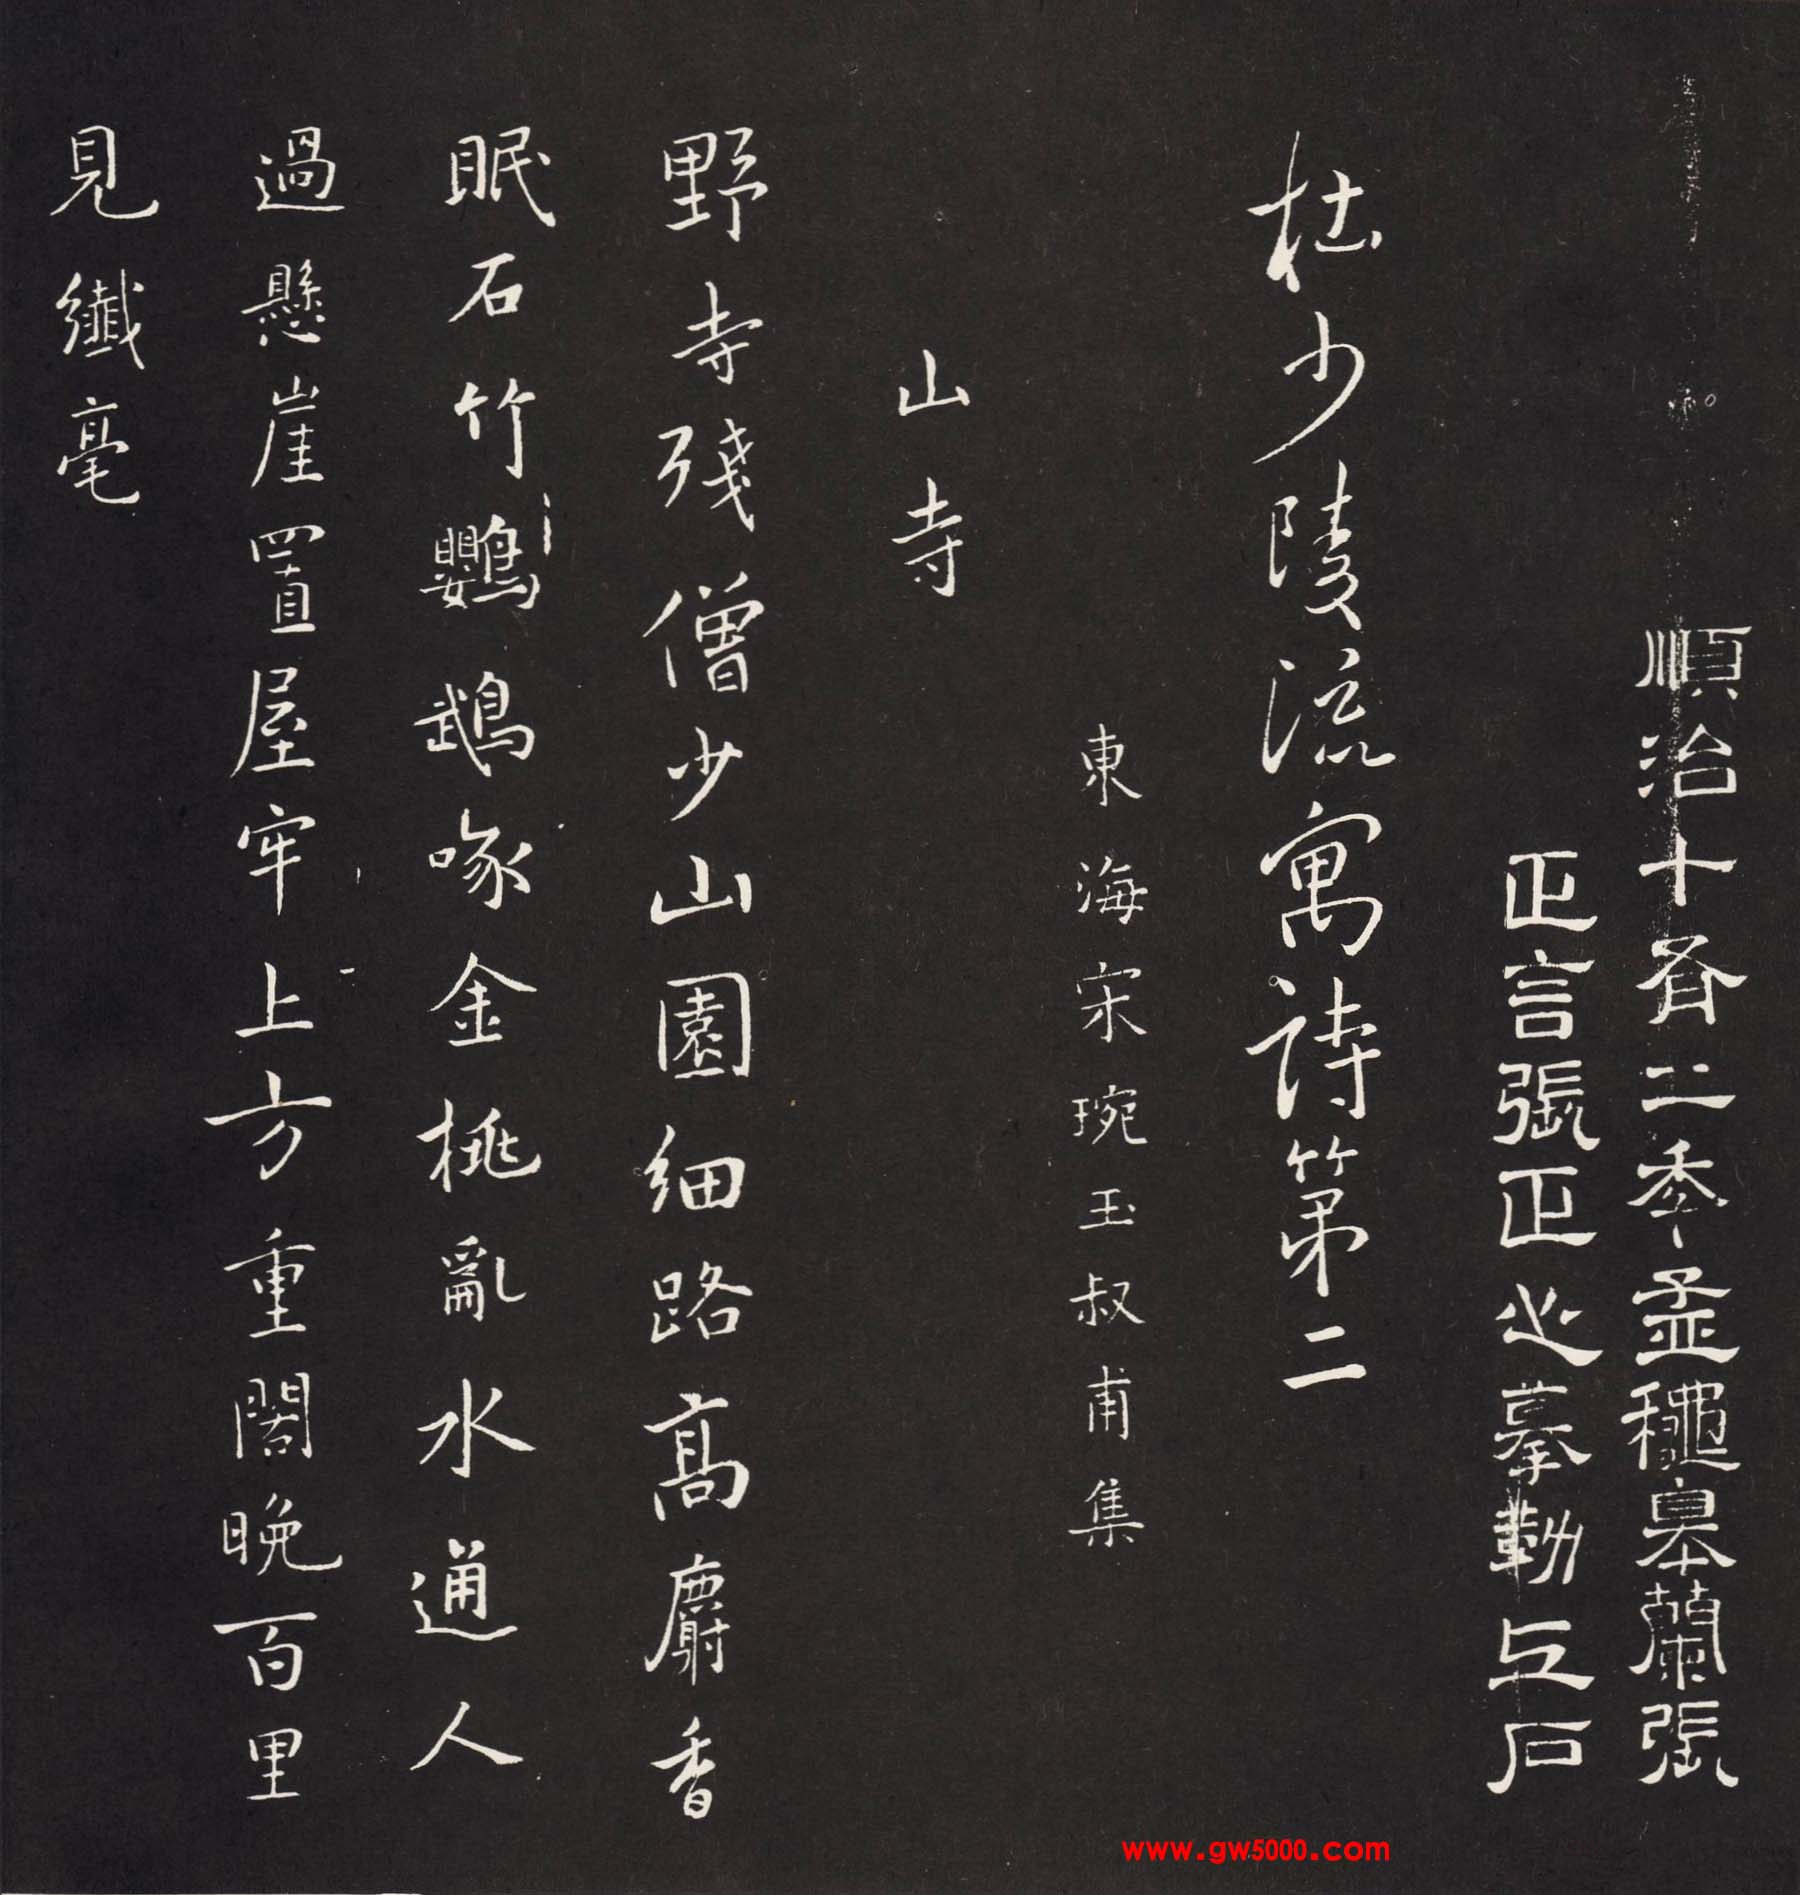 順治十有二年孟穐皋蘭張
正言張正心摹勒上石
杜少陵流寓詩第二
東海宋琬玉叔甫集
山寺
野寺殘僧少山園細路高麝香
眠石竹鸚鵡啄金桃亂水通人
過懸崖置屋牢上方重閣晚百里
見纖毫
www.gw5000.com